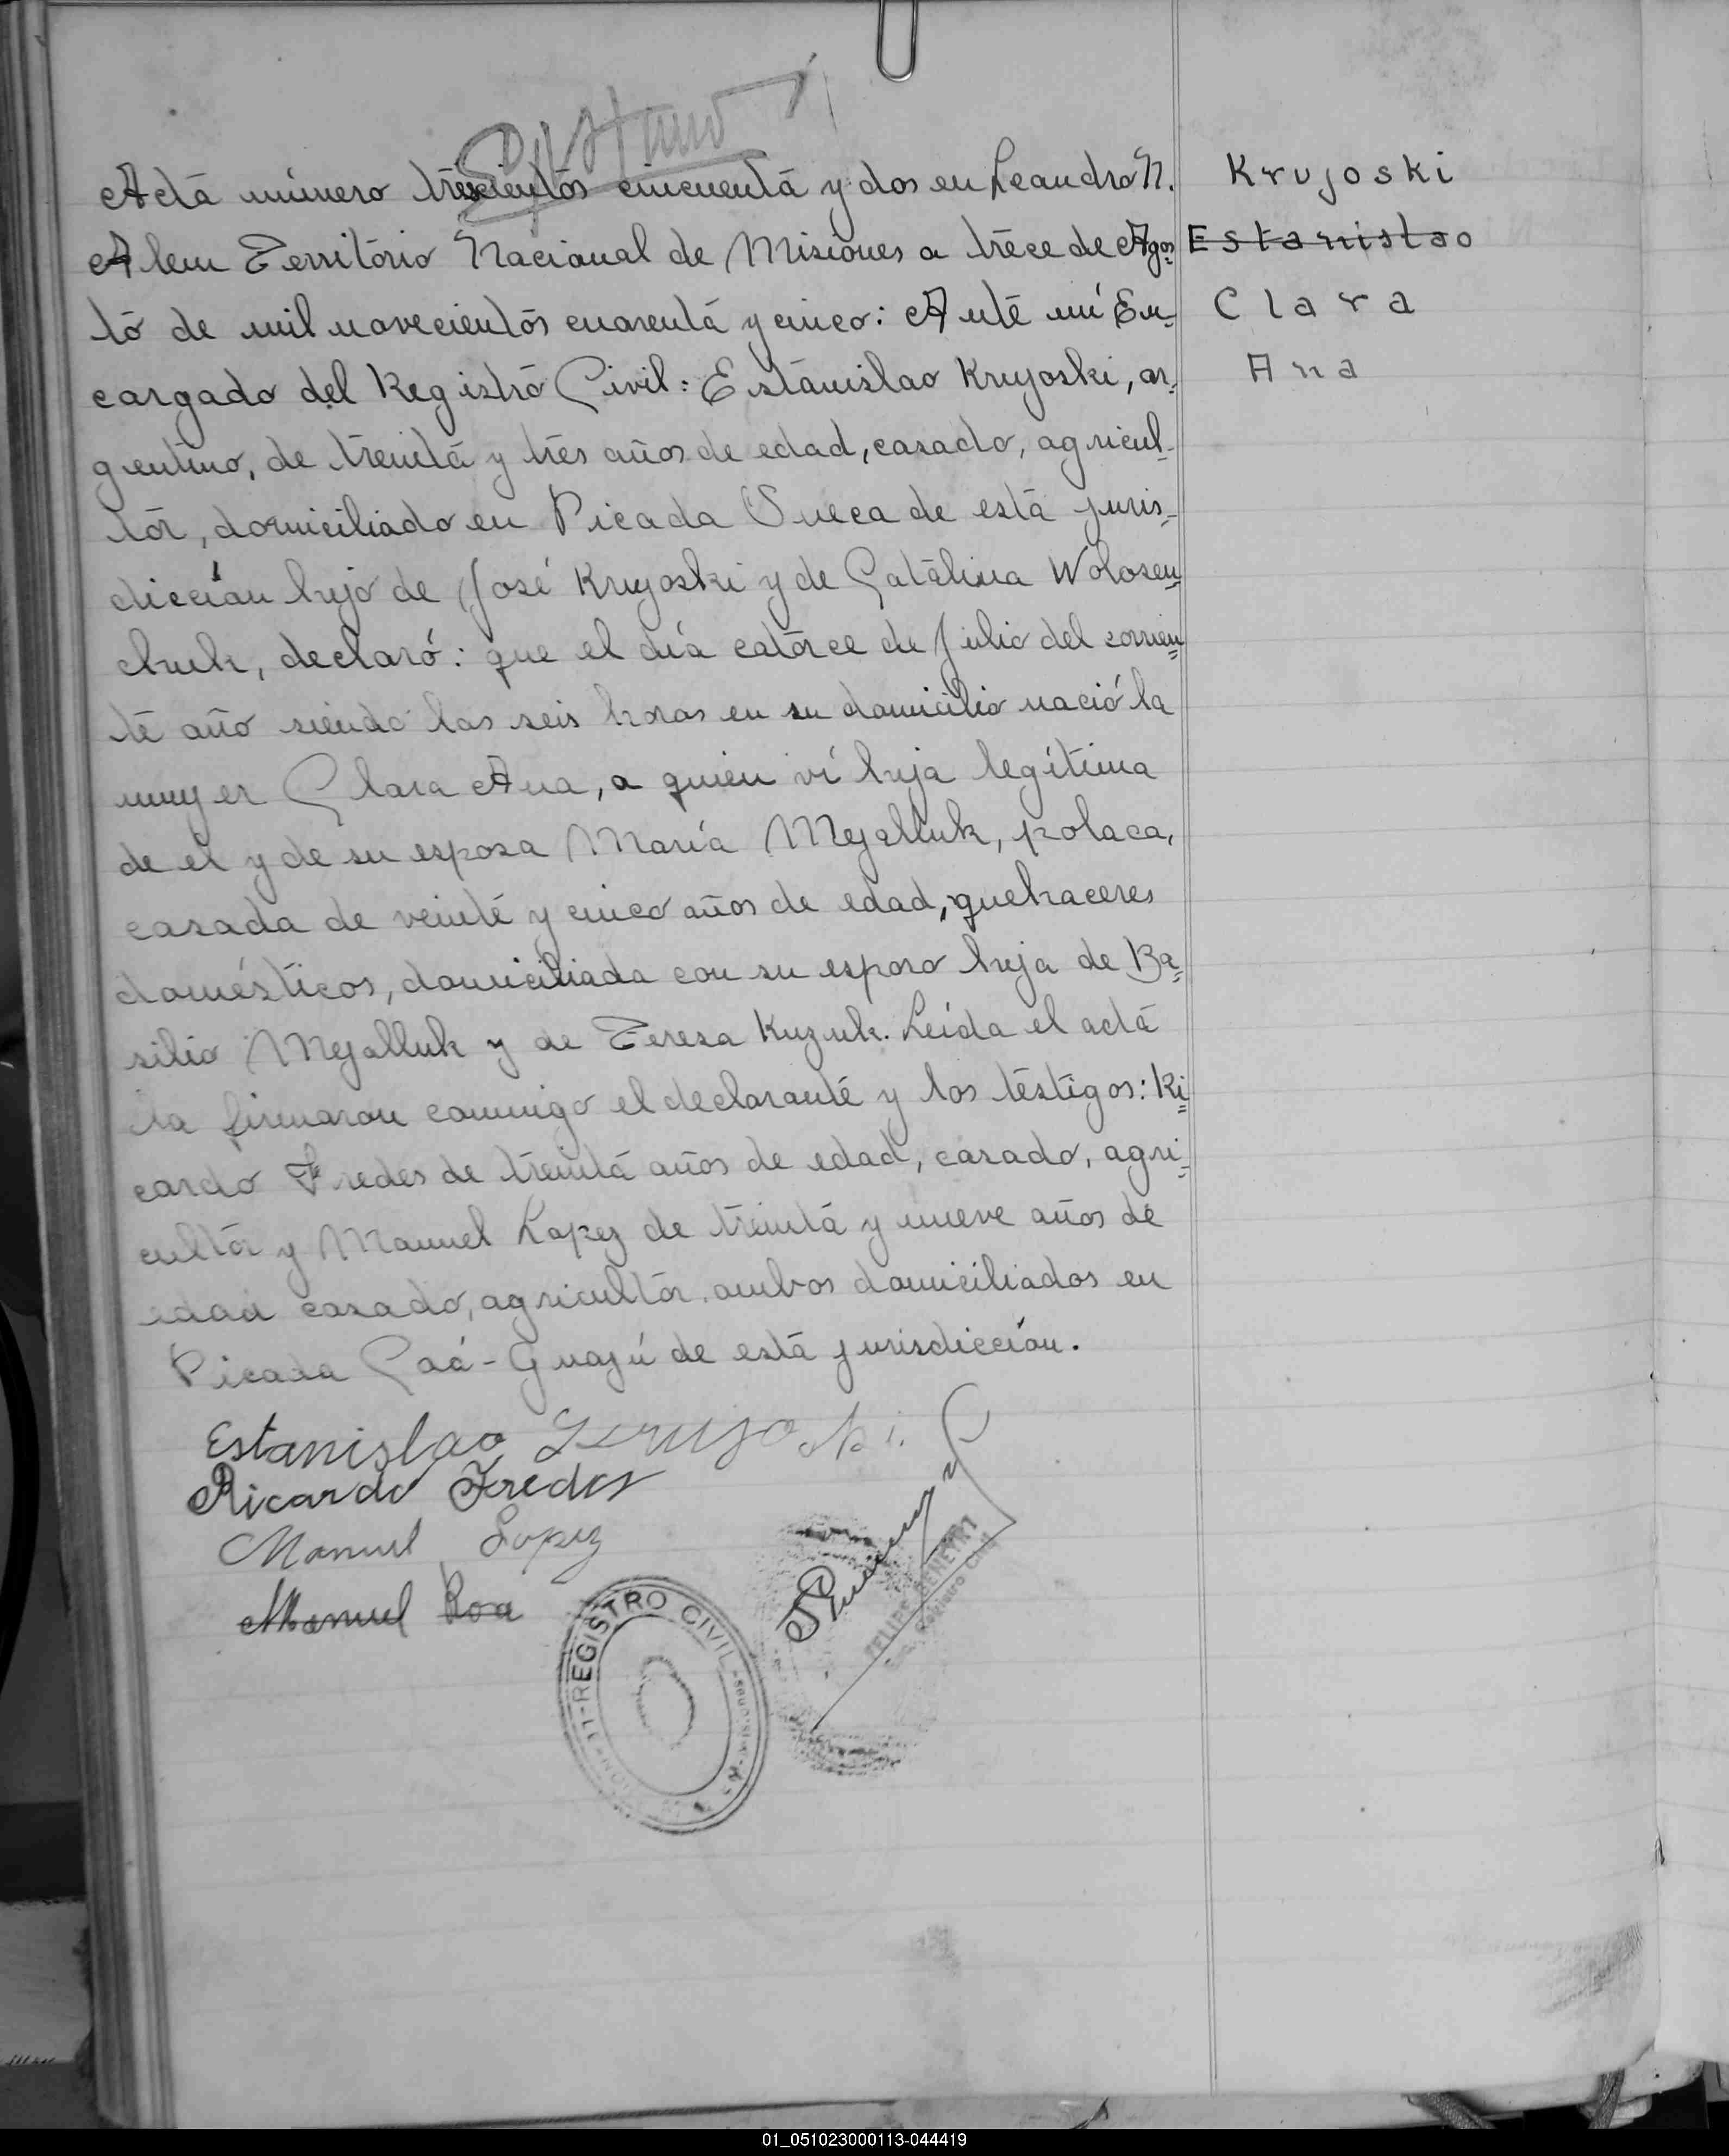 Acta número trescientos cincuenta y dos en Leandro N.
Alem Territorio Nacional de Misiones a trece de Agos=
to de mil novecientos cuarenta y cinco: Ante mí En=
cargado del Registro Civil: Estanislao Krujoski, ar=
gentino, de treinta y tres años de edad, casado, agricul=
tor, domiciliado en Picada Sueca de esta juris=
dicción hijo de José Krujoski y de Catalina Wolosen=
chuk, declaró: que el día catorce de Julio del corrien=
te año siendo las seis horas en su domicilio nació la
mujer Clara Ana, a quien ví hija legítima
de el y de su esposa María Mejalluk, polaca,
casada de veinte y cinco años de edad, quehaceres
domésticos, domiciliada con su esposo hija de Ba=
silio Mejalluk y de Teresa Kuzuk. Leída el acta
la firmaron conmigo el declarante y los testigos: Ri=
cardo Fredes de treinta años de edad, casado, agri=
cultor y Manuel Lopez de treinta y nueve años de
edad casado, agricultor, ambos domiciliados en
Picada Caá-Guajú de esta jurisdicción.
Krujoski
Estanislao
Clara
Ana
Estanislao Krujoski.
Ricardo Fredes
Manuel Lopez
Manuel Roa
REGISTRO CIVIL
FELIPE BENEYRI
Registro Civil
01_051023000113-044419